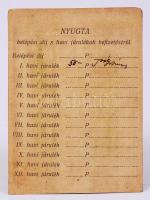 NYUGTA
belépési díj s havi járulékok befizetéséről.
Belépési díj P
I. havi járulék 50 P
II. havi járulék P
III. havi járulék P
IV. havi járulék P
V. havi járulék P
VI. havi járulék P
VII. havi járulék P
VIII. havi járulék P
IX. havi járulék P
X. havi járulék P
XI. havi járulék P
XII. havi járulék P